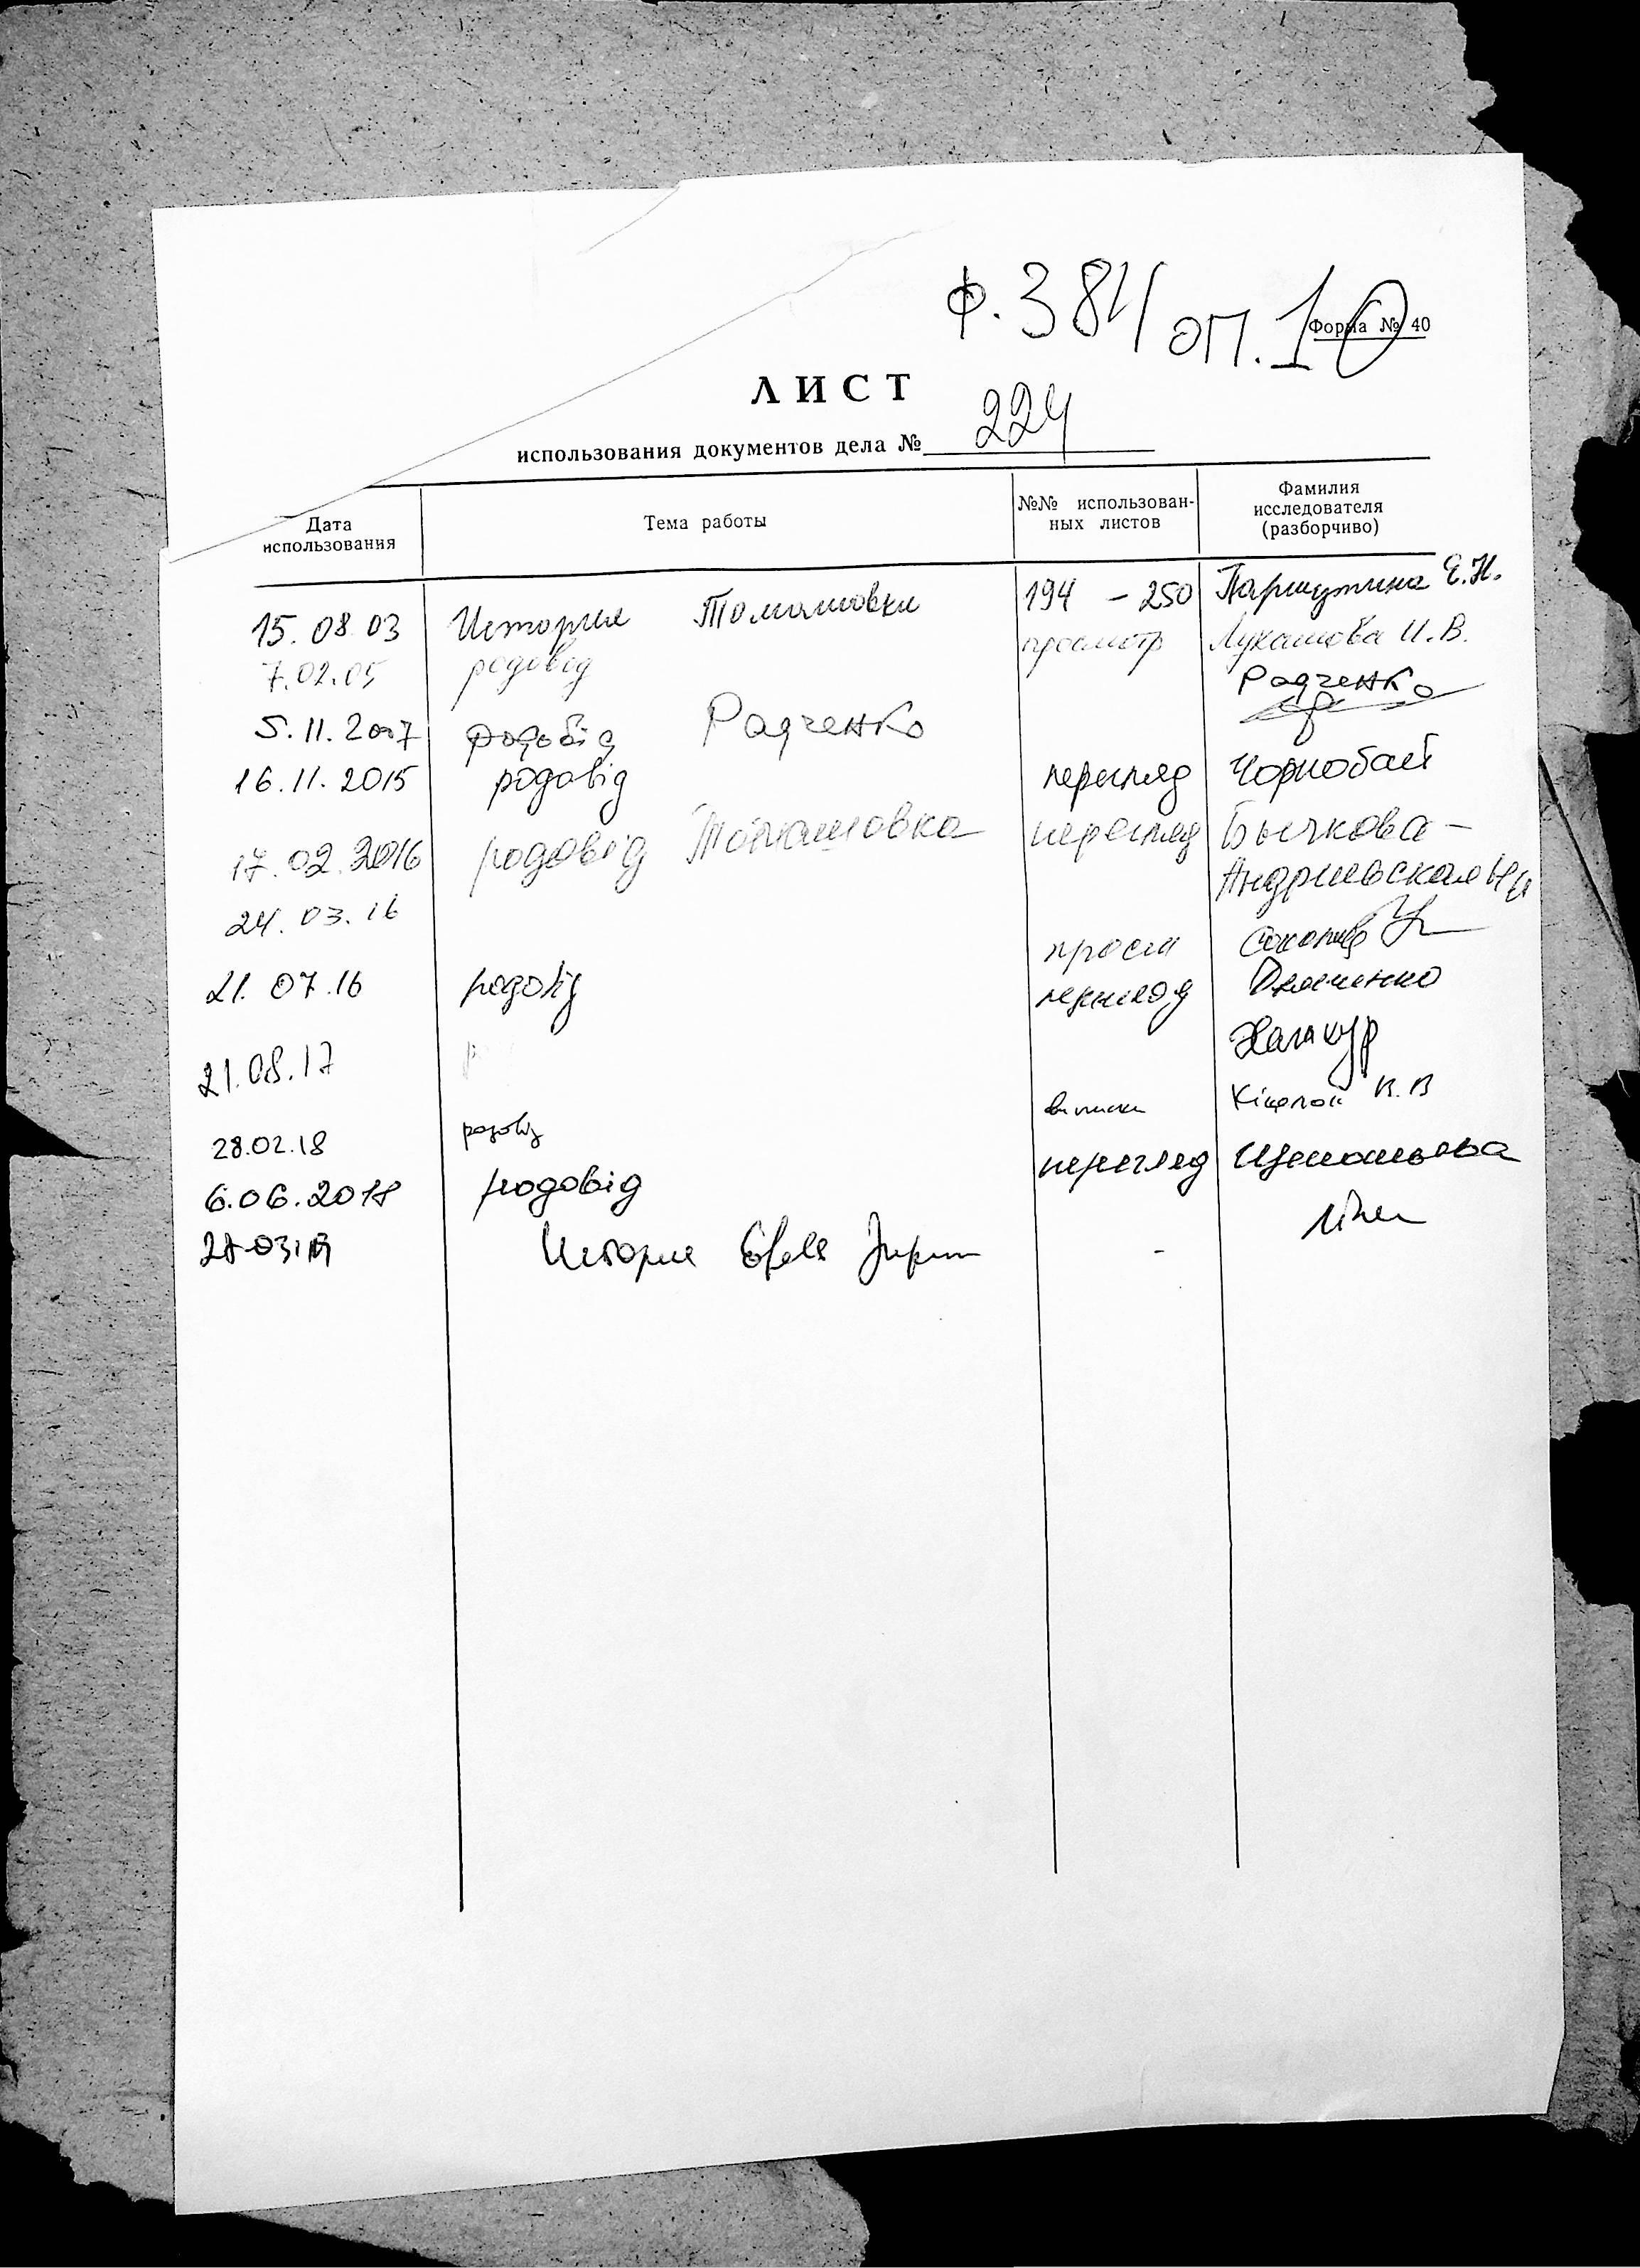 Ф. 384 оп. 10
Форма № 40
ЛИСТ
использования документов дела № 224
Дата использования Тема работы №№ использован-ных листов Фамилия исследователя (разборчиво)
15.08 03 История Томашовки 194 – 250 Паршутина Е.Н.
7.02.05 родовід просмотр Лукашова И.В.
5.11.2007 родовід Радченко Радченко
16.11.2015 родовід перегляд Чорнобай
17.02.2016 родовід Томашовка перегляд Бычкова –
Андриевская
24.03.16 просм
21.07.16 родовід перегляд
21.08.17
28.02.18 родовід виписки В.В
6.06.2018 родовід перегляд
История -